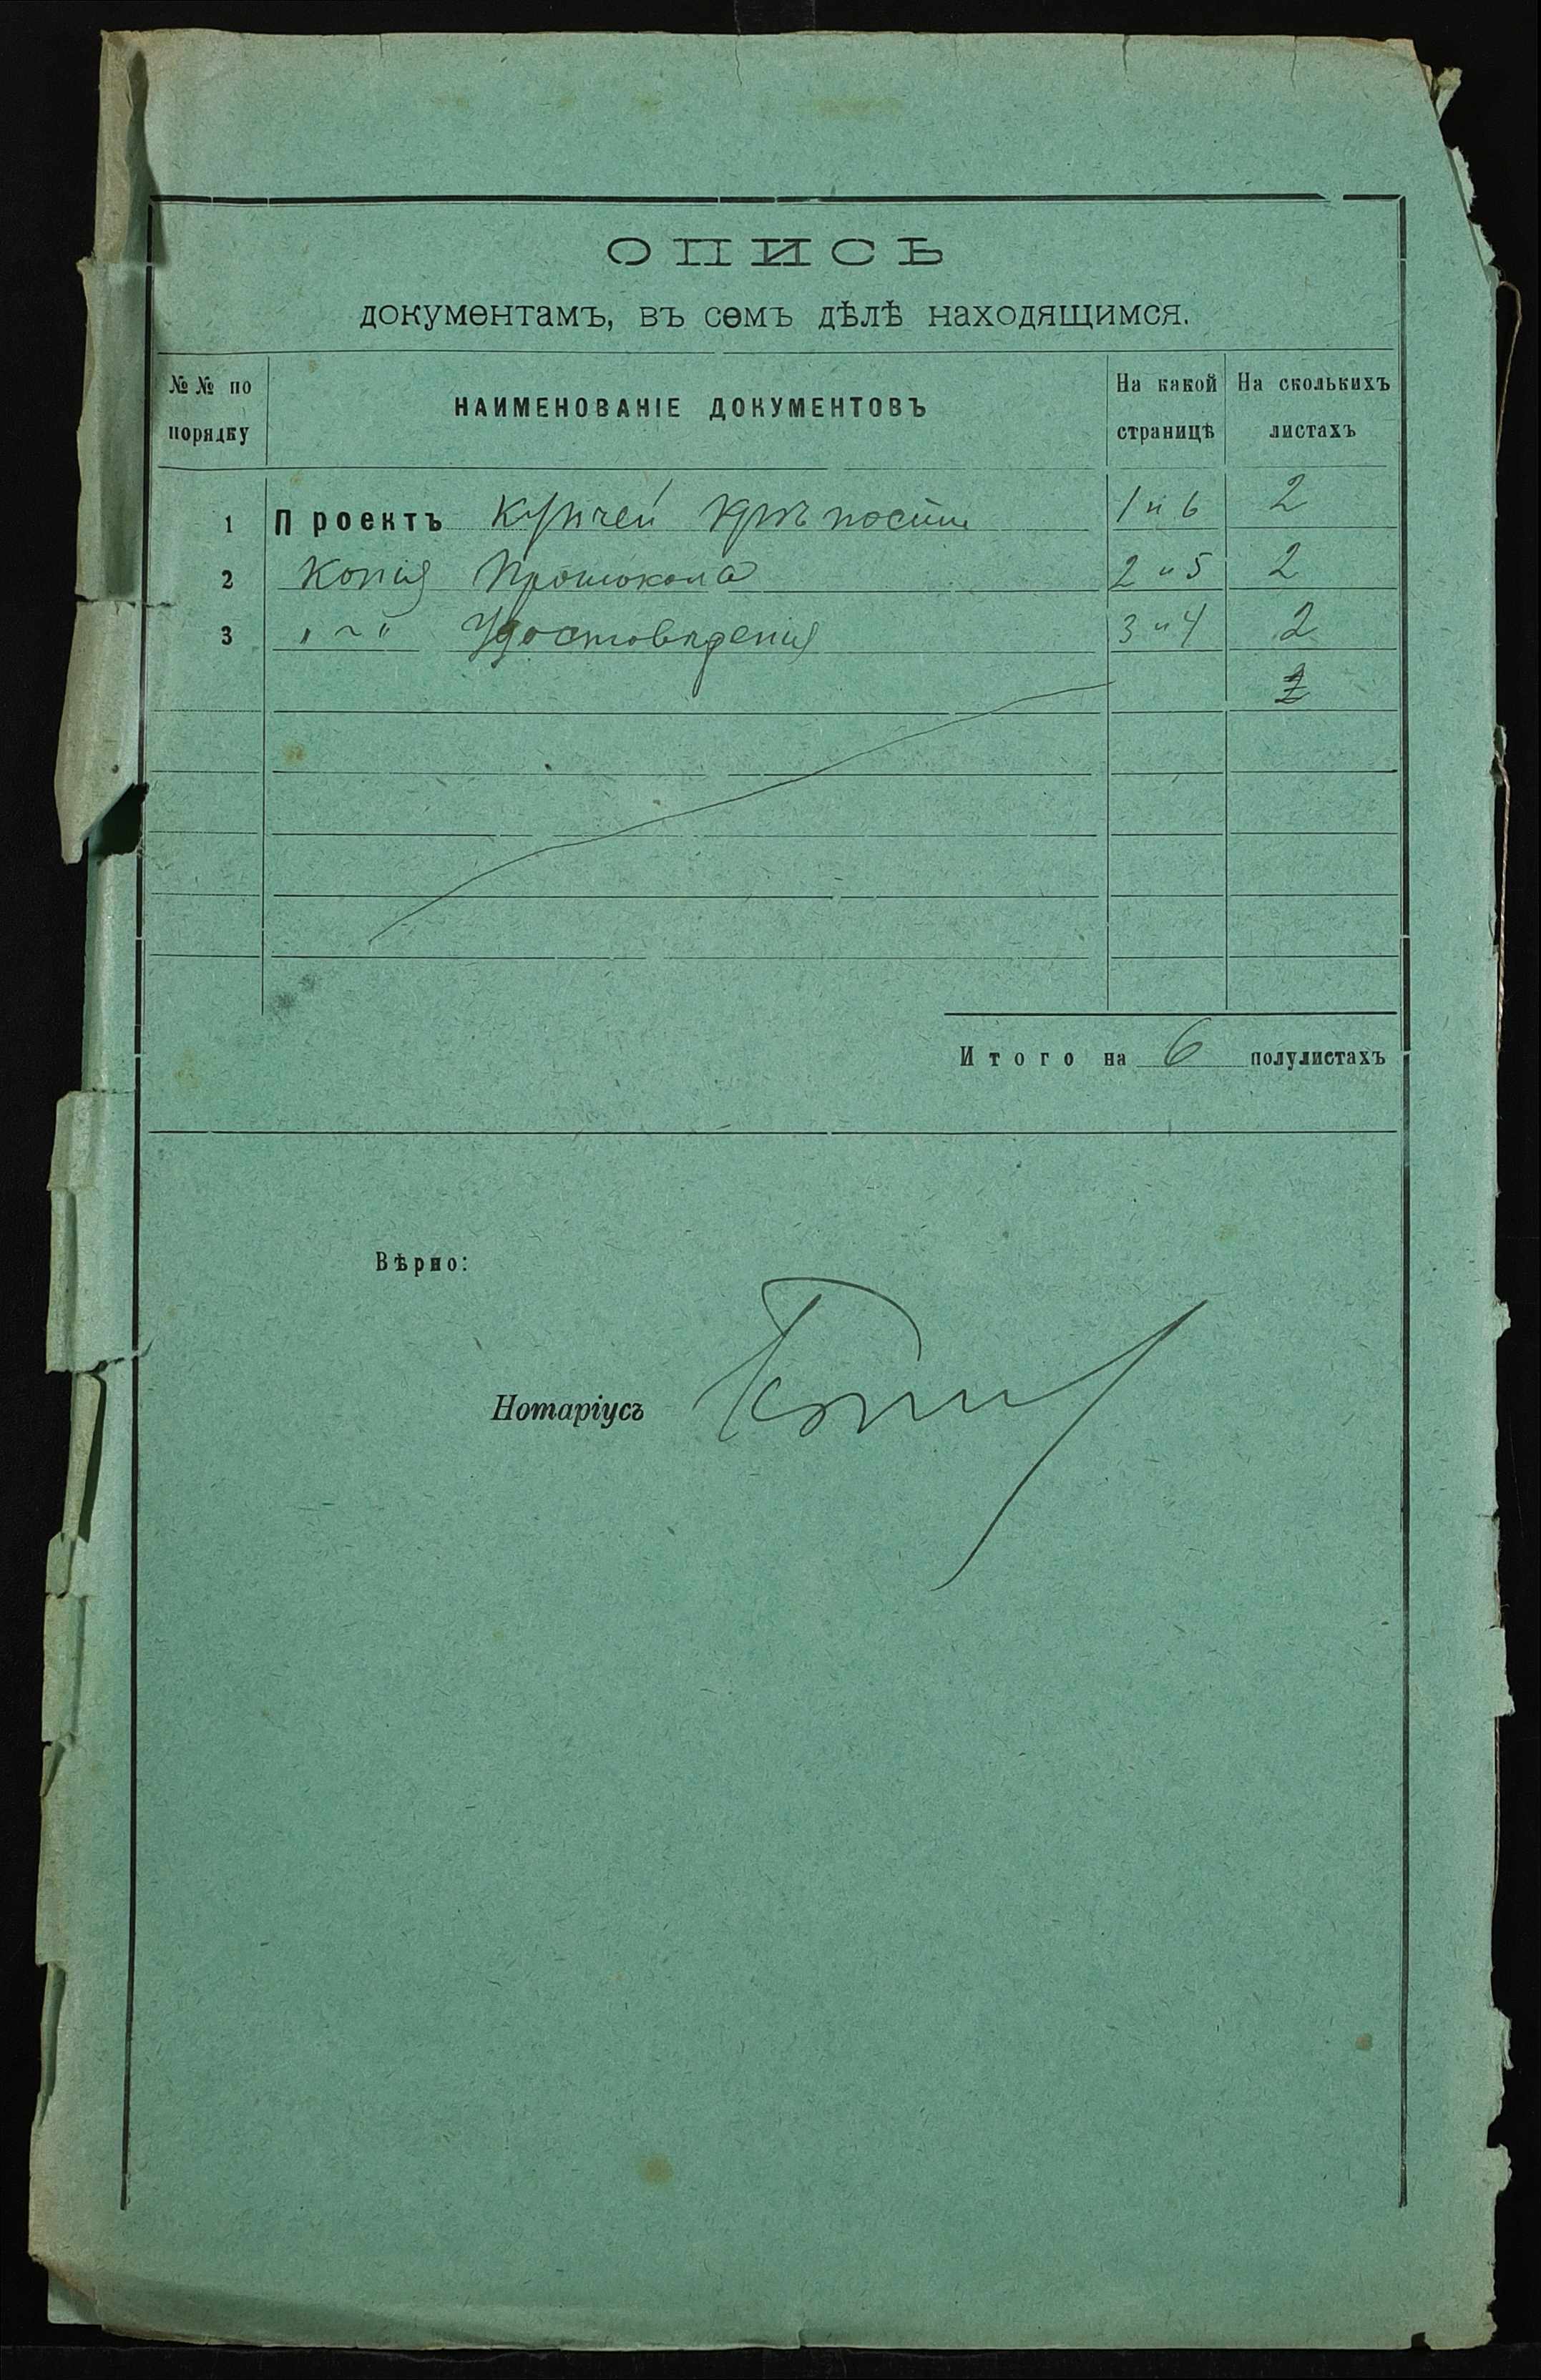 ОПИСЬ
документамъ, въ семъ дѣлѣ находящимся.
№№ по порядку НАИМЕНОВАНІЕ ДОКУМЕНТОВЪ На какой страницѣ На сколькихъ листахъ
1 Проектъ Купчей крѣпости 1 и 6 2
2 Копія Протокола 2 и 5 2
3 " ~ " Удостовѣренія 3 и 4 2
Итого на 6 полулистахъ
Вѣрно:
Нотаріусъ